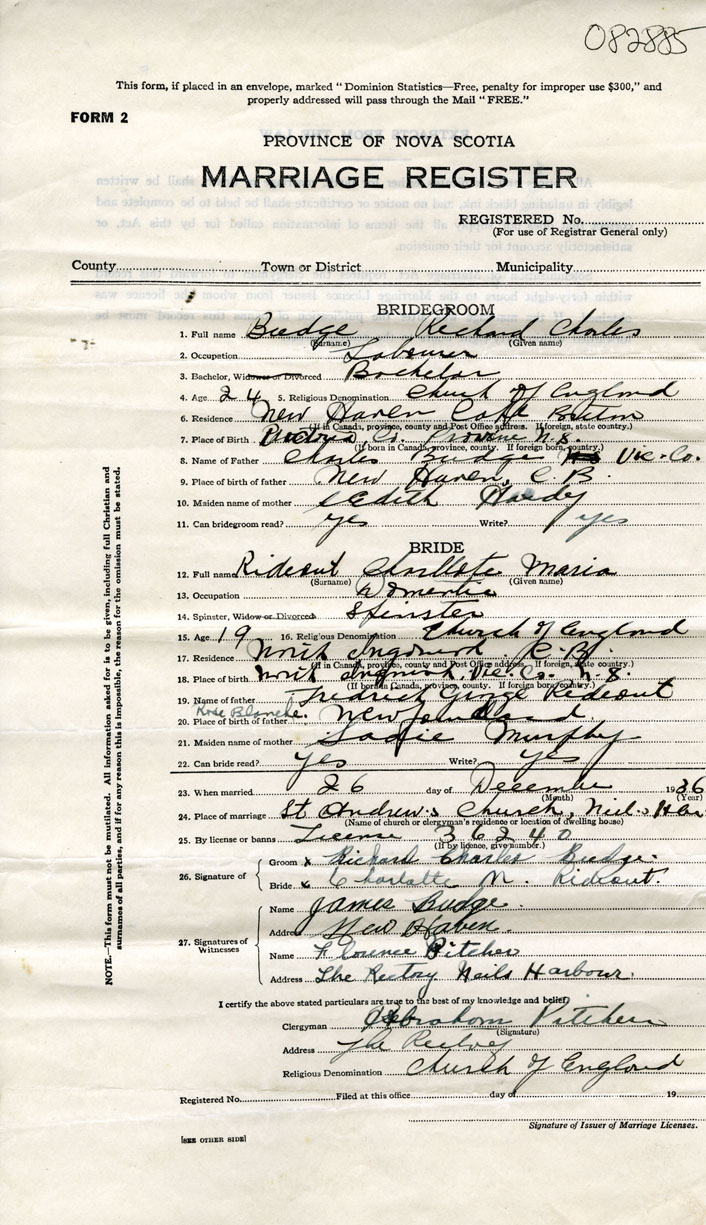 082885
This form, if placed in an envelope, marked "Dominion Statistics—Free, penalty for improper use $300," and
properly addressed will pass through the Mail "FREE."
FORM 2
PROVINCE OF NOVA SCOTIA
MARRIAGE REGISTER
REGISTERED No.
(For use of Registrar General only)
County Town or District Municipality
BRIDEGROOM
1. Full name Budge Richard Charles
(Surname) (Given name)
2. Occupation Labourer
3. Bachelor, Widower or Divorced Bachelor
4. Age 24 5. Religious Denomination Church of England
6. Residence New Haven Cape Breton
(If in Canada, province, county and Post Office address. If foreign, state country.)
7. Place of Birth Victoria Co. Province N.S.
(If born in Canada, province, county. If foreign born, country.)
8. Name of Father Charles Budge Vic. Co.
9. Place of birth of father New Haven, C.B.
10. Maiden name of mother Edith Hardy
11. Can bridegroom read? yes Write? yes
BRIDE
12. Full name Rideout Charllote Maria
(Surname) (Given name)
13. Occupation Domestic
14. Spinster, Widow or Divorced Spinster
15. Age 19 16. Religious Denomination Church of England
17. Residence North Ingonish C.B.
(If in Canada, province, county and Post Office address. If foreign, state country.)
18. Place of birth North Ingonish, Vic. Co. N.S.
(If born in Canada, province, county. If foreign born, country.)
19. Name of father Fredrick George Rideout
Rose Blanche.
20. Place of birth of father Newfoundland
21. Maiden name of mother Sadie Murphy
22. Can bride read? yes Write? yes
23. When married 26 day of December 1936
(Month) (Year)
24. Place of marriage St. Andrew's Church, Neil's Har
(Name of church or clergyman's residence or location of dwelling house)
25. By license or banns License 36240
(If by licence, give number.)
26. Signature of Groom x Richard Charles Budge.
Bride x Charlotte M. Rideout.
27. Signatures of Witnesses
Name James Budge.
Address New Haven.
Name Florence Pitcher
Address The Rectory Neils Harbour.
I certify the above stated particulars are true to the best of my knowledge and belief,
Clergyman Abraham Pitcher
(Signature)
Address The Rectory
Religious Denomination Church of England
Registered No. Filed at this office day of 19
Signature of Issuer of Marriage Licenses.
[SEE OTHER SIDE]
NOTE.—This form must not be mutilated. All information asked for is to be given, including full Christian and
surnames of all parties, and if for any reason this is impossible, the reason for the omission must be stated.